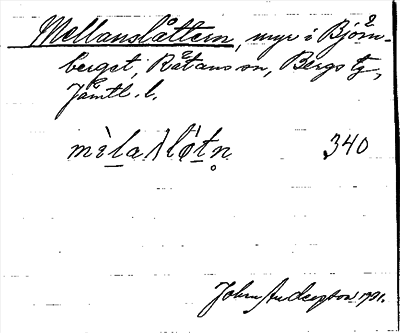 Mellanslåttern, myr i Björn-
berget, Rätans sn, Bergs tg,
Jämtl. l.
mèla⟩lǿtn̥ 340
John Andersson 1721.